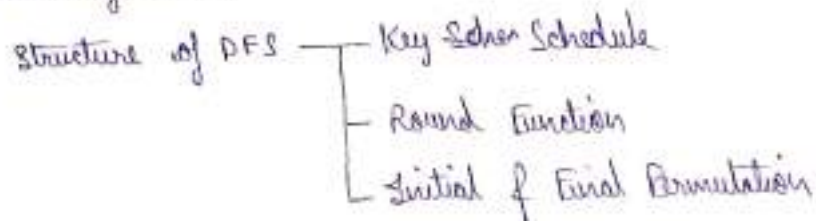 Structure of DES — Key Scher Schedule
Round Function
Initial & Final Permutation